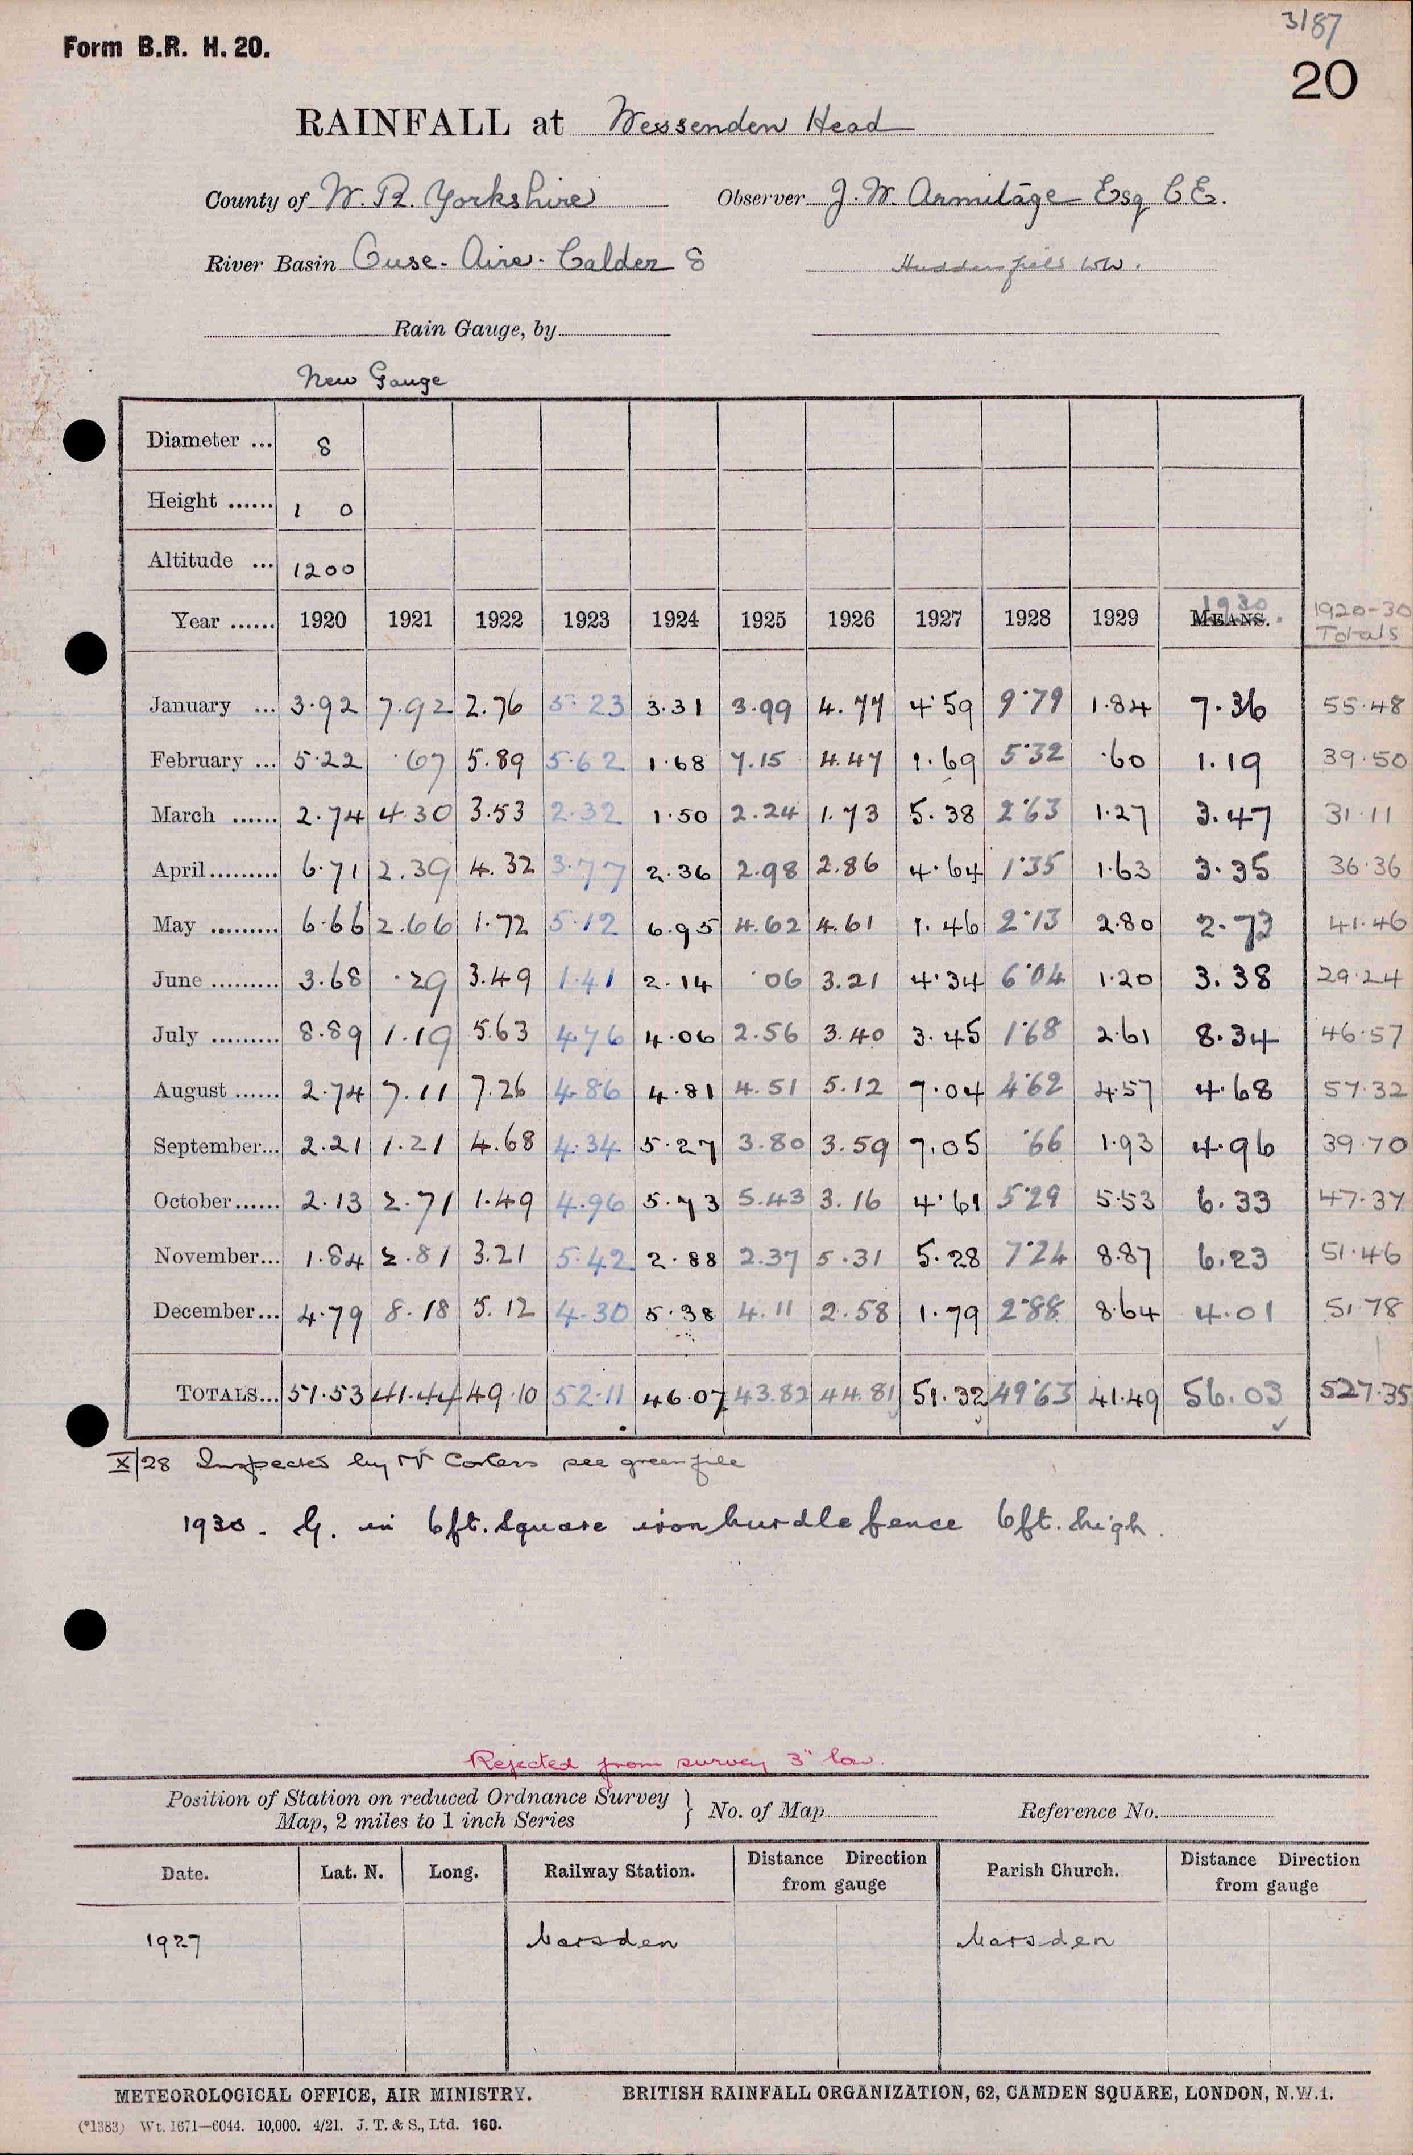 3/87
Form B.R. H. 20.
20
RAINFALL at Wessenden Head
County of W. R. Yorkshire Observer J. W. Armitage Esq C E.
River Basin Ouse. Aire. Calder 8 Huddersfield WW.
Rain Gauge, by
New Gauge
Diameter ... 8
Height ...... 1 0
Altitude ... 1200
Year ...... 1920 1921 1922 1923 1924 1925 1926 1927 1928 1929 MEANS. 1930 1920-30 Totals
January ... 3.92 7.92 2.76 5.23 3.31 3.99 4.77 4.59 9.79 1.84 7.36 55.48
February ... 5.22 .67 5.89 5.62 1.68 7.15 4.47 1.69 5.32 .60 1.19 39.50
March ...... 2.74 4.30 3.53 2.32 1.50 2.24 1.73 5.38 2.63 1.27 3.47 31.11
April......... 6.71 2.39 4.32 3.77 2.36 2.98 2.86 4.64 1.35 1.63 3.35 36.36
May ......... 6.66 2.66 1.72 5.12 6.95 4.62 4.61 1.46 2.13 2.80 2.73 41.46
June ......... 3.68 .29 3.49 1.41 2.14 .06 3.21 4.34 6.04 1.20 3.38 29.24
July ......... 8.89 1.19 5.63 4.76 4.06 2.56 3.40 3.45 1.68 2.61 8.34 46.57
August ...... 2.74 7.11 7.26 4.86 4.81 4.51 5.12 7.04 4.62 4.57 4.68 57.32
September... 2.21 1.21 4.68 4.34 5.27 3.80 3.59 7.05 .66 1.93 4.96 39.70
October...... 2.13 2.71 1.49 4.96 5.73 5.43 3.16 4.61 5.29 5.53 6.33 47.37
November... 1.84 2.81 3.21 5.42 2.88 2.37 5.31 5.28 7.24 8.87 6.23 51.46
December... 4.79 8.18 5.12 4.30 5.38 4.11 2.58 1.79 2.88 8.64 4.01 51.78
TOTALS... 51.53 41.44 49.10 52.11 46.07 43.82 44.81 51.32 49.63 41.49 56.03 527.35
X/28 Inspected by Mr see green file
1930. G. in 6ft. square iron hurdle fence 6ft. high.
Rejected from survey 3" low.
Position of Station on reduced Ordnance Survey Map, 2 miles to 1 inch Series } No. of Map Reference No.
Date. Lat. N. Long. Railway Station. Distance Direction from gauge Parish Church. Distance Direction from gauge
1927 Marsden Marsden
METEOROLOGICAL OFFICE, AIR MINISTRY. BRITISH RAINFALL ORGANIZATION, 62, CAMDEN SQUARE, LONDON, N.W.1.
(*1383) Wt. 1671—6044. 10,000. 4/21. J. T. & S., Ltd. 160.